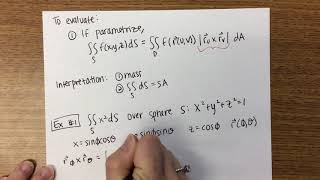 To evaluate:
① If parametrize,
∬_S f(x,y,z)dS = ∬_D f(r⃗(u,v)) |r⃗_u × r⃗_v| dA
Interpretation: ① mass
② ∬_S dS = SA
Ex #1 ∬_S x² dS over sphere S: x²+y²+z²=1
x = sinφcosθ = sinφsinθ z = cosφ r⃗(φ,θ)
r⃗_φ × r⃗_θ =